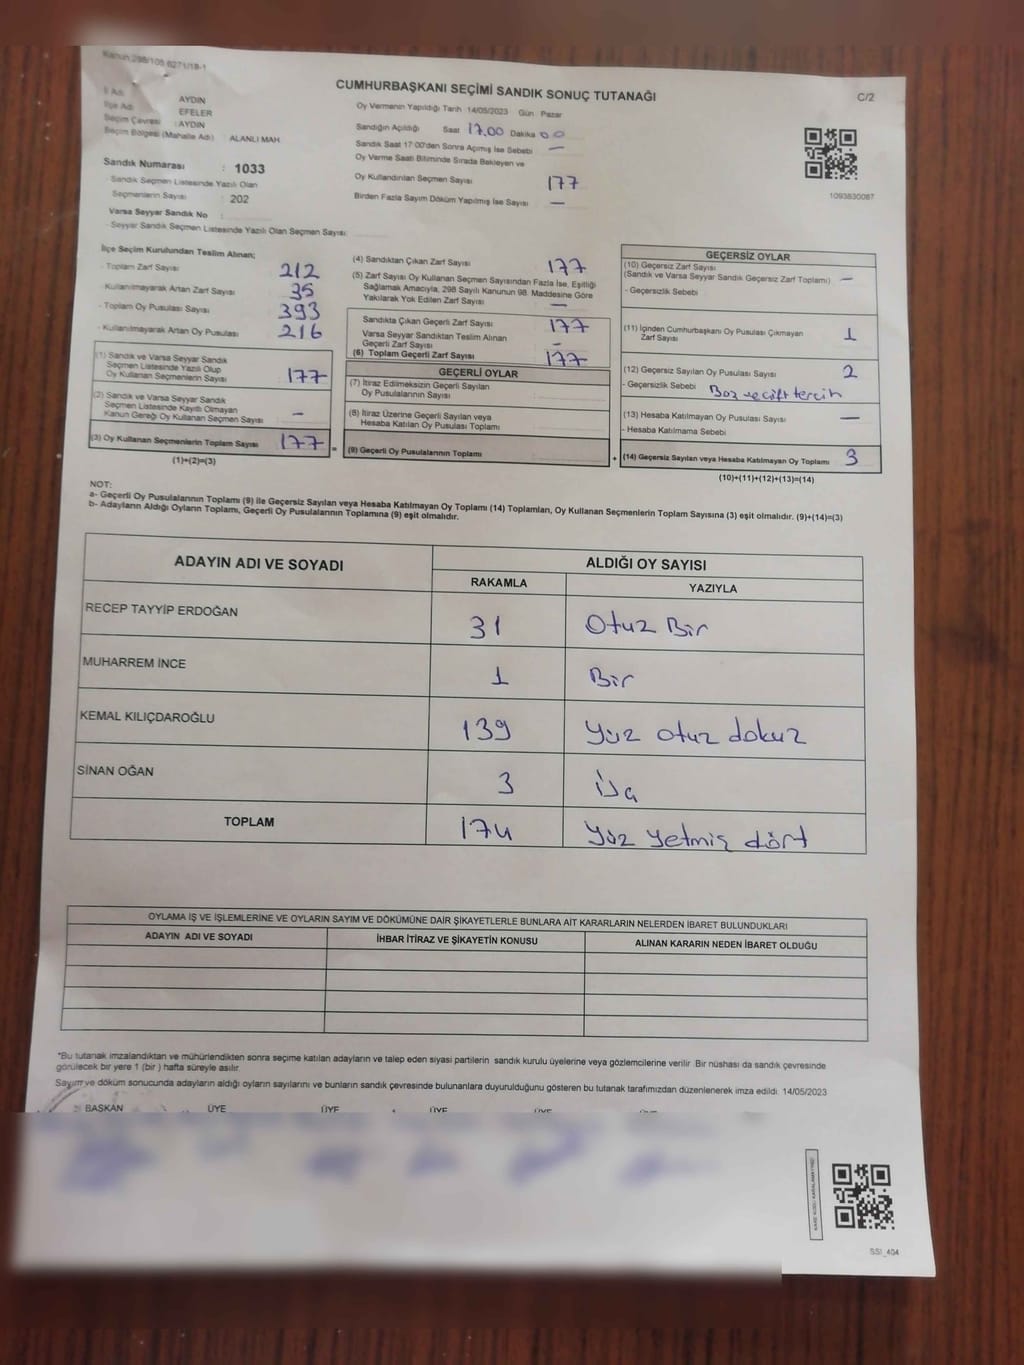 Kanun:298/105 6271/18-1
CUMHURBAŞKANI SEÇİMİ SANDIK SONUÇ TUTANAĞI
C/2
İl Adı : AYDIN
İlçe Adı : EFELER
Seçim Çevresi : AYDIN
Seçim Bölgesi (Mahalle Adı) : ALANLI MAH
Sandık Numarası : 1033
- Sandık Seçmen Listesinde Yazılı Olan
Seçmenlerin Sayısı : 202
Varsa Seyyar Sandık No :
- Seyyar Sandık Seçmen Listesinde Yazılı Olan Seçmen Sayısı:
Oy Vermenin Yapıldığı Tarih 14/05/2023 Gün Pazar
Sandığın Açıldığı Saat 17.00 Dakika 00
Sandık Saat 17:00'den Sonra Açılmış İse Sebebi —
Oy Verme Saati Bitiminde Sırada Bekleyen ve
Oy Kullandırılan Seçmen Sayısı 177
Birden Fazla Sayım Döküm Yapılmış İse Sayısı —
1093830087
İlçe Seçim Kurulundan Teslim Alınan;
- Toplam Zarf Sayısı 212
- Kullanılmayarak Artan Zarf Sayısı 35
- Toplam Oy Pusulası Sayısı 393
- Kullanılmayarak Artan Oy Pusulası 216
(1) Sandık ve Varsa Seyyar Sandık
Seçmen Listesinde Yazılı Olup
Oy Kullanan Seçmenlerin Sayısı 177
(2) Sandık ve Varsa Seyyar Sandık
Seçmen Listesinde Kayıtlı Olmayan
Kanun Gereği Oy Kullanan Seçmen Sayısı -
(3) Oy Kullanan Seçmenlerin Toplam Sayısı 177 =
(1)+(2)=(3)
(4) Sandıktan Çıkan Zarf Sayısı 177
(5) Zarf Sayısı Oy Kullanan Seçmen Sayısından Fazla İse, Eşitliği
Sağlamak Amacıyla, 298 Sayılı Kanunun 98. Maddesine Göre
Yakılarak Yok Edilen Zarf Sayısı —
Sandıkta Çıkan Geçerli Zarf Sayısı 177
Varsa Seyyar Sandıktan Teslim Alınan
Geçerli Zarf Sayısı -
(6) Toplam Geçerli Zarf Sayısı 177
GEÇERLİ OYLAR
(7) İtiraz Edilmeksizin Geçerli Sayılan
Oy Pusulalarının Sayısı
(8) İtiraz Üzerine Geçerli Sayılan veya
Hesaba Katılan Oy Pusulası Toplamı
(9) Geçerli Oy Pusulalarının Toplamı +
GEÇERSİZ OYLAR
(10) Geçersiz Zarf Sayısı
(Sandık ve Varsa Seyyar Sandık Geçersiz Zarf Toplamı) —
- Geçersizlik Sebebi
(11) İçinden Cumhurbaşkanı Oy Pusulası Çıkmayan
Zarf Sayısı 1
(12) Geçersiz Sayılan Oy Pusulası Sayısı 2
- Geçersizlik Sebebi Boz ve çift tercih
(13) Hesaba Katılmayan Oy Pusulası Sayısı —
- Hesaba Katılmama Sebebi
(14) Geçersiz Sayılan veya Hesaba Katılmayan Oy Toplamı 3
(10)+(11)+(12)+(13)=(14)
NOT:
a- Geçerli Oy Pusulalarının Toplamı (9) ile Geçersiz Sayılan veya Hesaba Katılmayan Oy Toplamı (14) Toplamları, Oy Kullanan Seçmenlerin Toplam Sayısına (3) eşit olmalıdır. (9)+(14)=(3)
b- Adayların Aldığı Oyların Toplamı, Geçerli Oy Pusulalarının Toplamına (9) eşit olmalıdır.
ADAYIN ADI VE SOYADI
ALDIĞI OY SAYISI
RAKAMLA YAZIYLA
RECEP TAYYİP ERDOĞAN 31 Otuz Bir
MUHARREM İNCE 1 Bir
KEMAL KILIÇDAROĞLU 139 Yüz otuz dokuz
SİNAN OĞAN 3 üç
TOPLAM 174 Yüz yetmiş dört
OYLAMA İŞ VE İŞLEMLERİNE VE OYLARIN SAYIM VE DÖKÜMÜNE DAİR ŞİKAYETLERLE BUNLARA AİT KARARLARIN NELERDEN İBARET BULUNDUKLARI
ADAYIN ADI VE SOYADI İHBAR İTİRAZ VE ŞİKAYETİN KONUSU ALINAN KARARIN NEDEN İBARET OLDUĞU
*Bu tutanak imzalandıktan ve mühürlendikten sonra seçime katılan adayların ve talep eden siyasi partilerin sandık kurulu üyelerine veya gözlemcilerine verilir. Bir nüshası da sandık çevresinde
görülecek bir yere 1 (bir ) hafta süreyle asılır.
Sayım ve döküm sonucunda adayların aldığı oyların sayılarını ve bunların sandık çevresinde bulunanlara duyurulduğunu gösteren bu tutanak tarafımızdan düzenlenerek imza edildi. 14/05/2023
BAŞKAN ÜYE ÜYE ÜYE ÜYE ÜYE
SSI_404